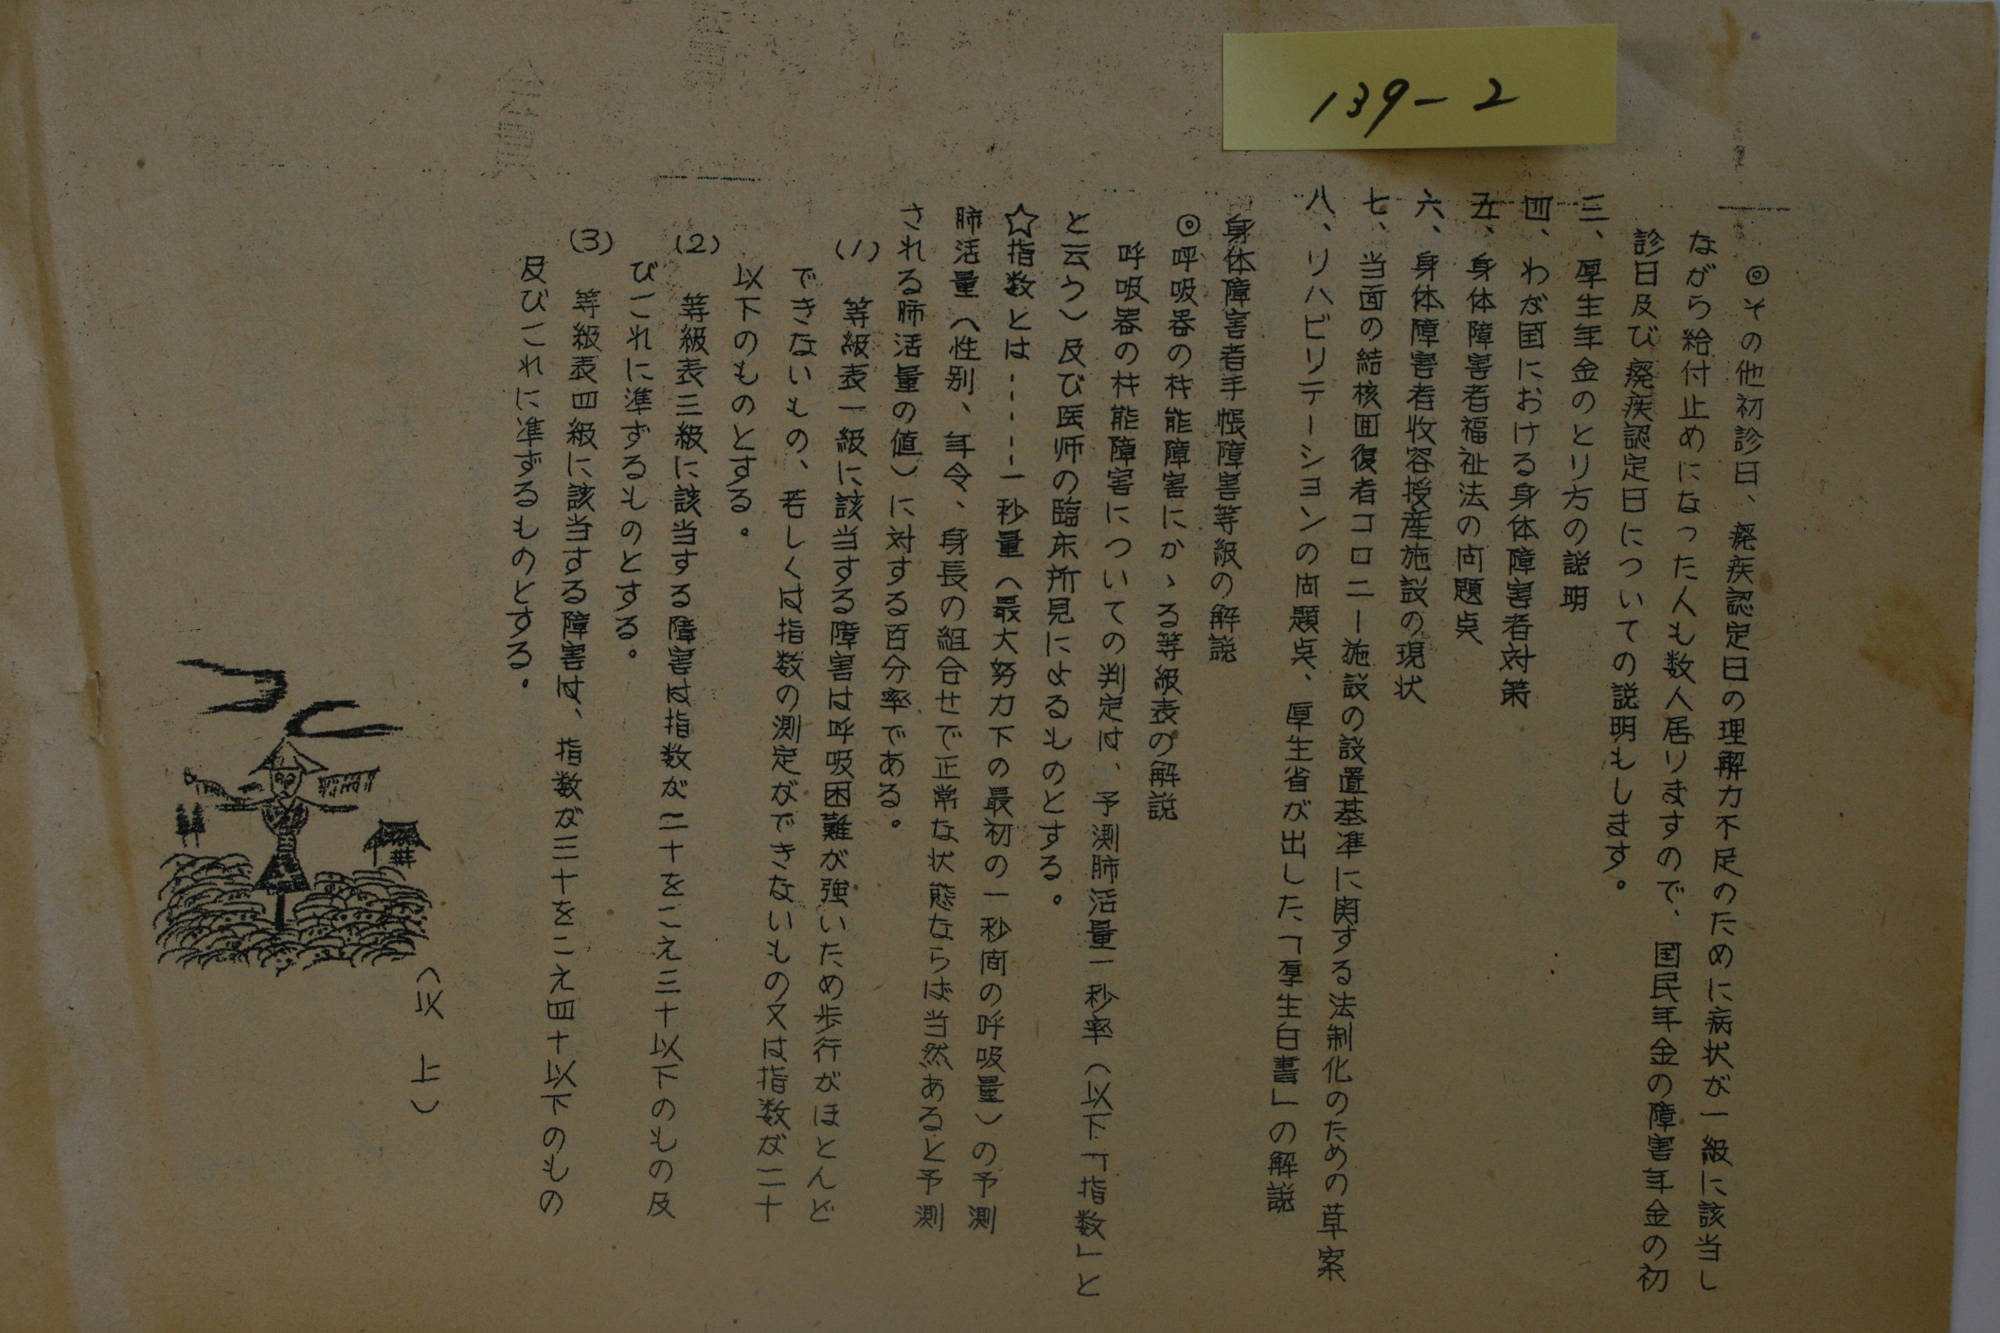 139-2
◎その他初診日、癈疾認定日の理解力不足のために病状が一級に該当し
ながら給付止めになった人も数人居りますので、国民年金の障害年金の初
診日及び癈疾認定日についての説明もします。
三、厚生年金のとり方の説明
四、わが国における身体障害者対策
五、身体障害者福祉法の問題点
六、身体障害者收容授産施設の現状
七、当面の結核回復者コロニー施設の設置基準に関する法制化のための草案
八、リハビリテーションの問題点、厚生省が出した、「厚生白書」の解説
身体障害者手帳障害等級の解説
◎呼吸器の機能障害にかゝる等級表の解説
呼吸器の機能障害についての判定は、予測肺活量一秒率(以下「指数」と
と云う)及び医師の臨床所見によるものとする。
☆指数とは-----一秒量(最大努力下の最初の一秒間の呼吸量)の予測
肺活量(性別、年令、身長の組合せで正常な状態ならば当然あると予測
される肺活量の値)に対する百分率である。
(1) 等級表一級に該当する障害は呼吸困難が強いため歩行がほとんど
できないもの、若しくは指数の測定ができないもの又は指数が二十
以下のものとする。
(2) 等級表三級に該当する障害は指数が二十をこえ三十以下のもの及
びこれに準ずるものとする。
(3) 等級表四級に該当する障害は、指数が三十をこえ四十以下のもの
及びこれに準ずるものとする。
(以 上)